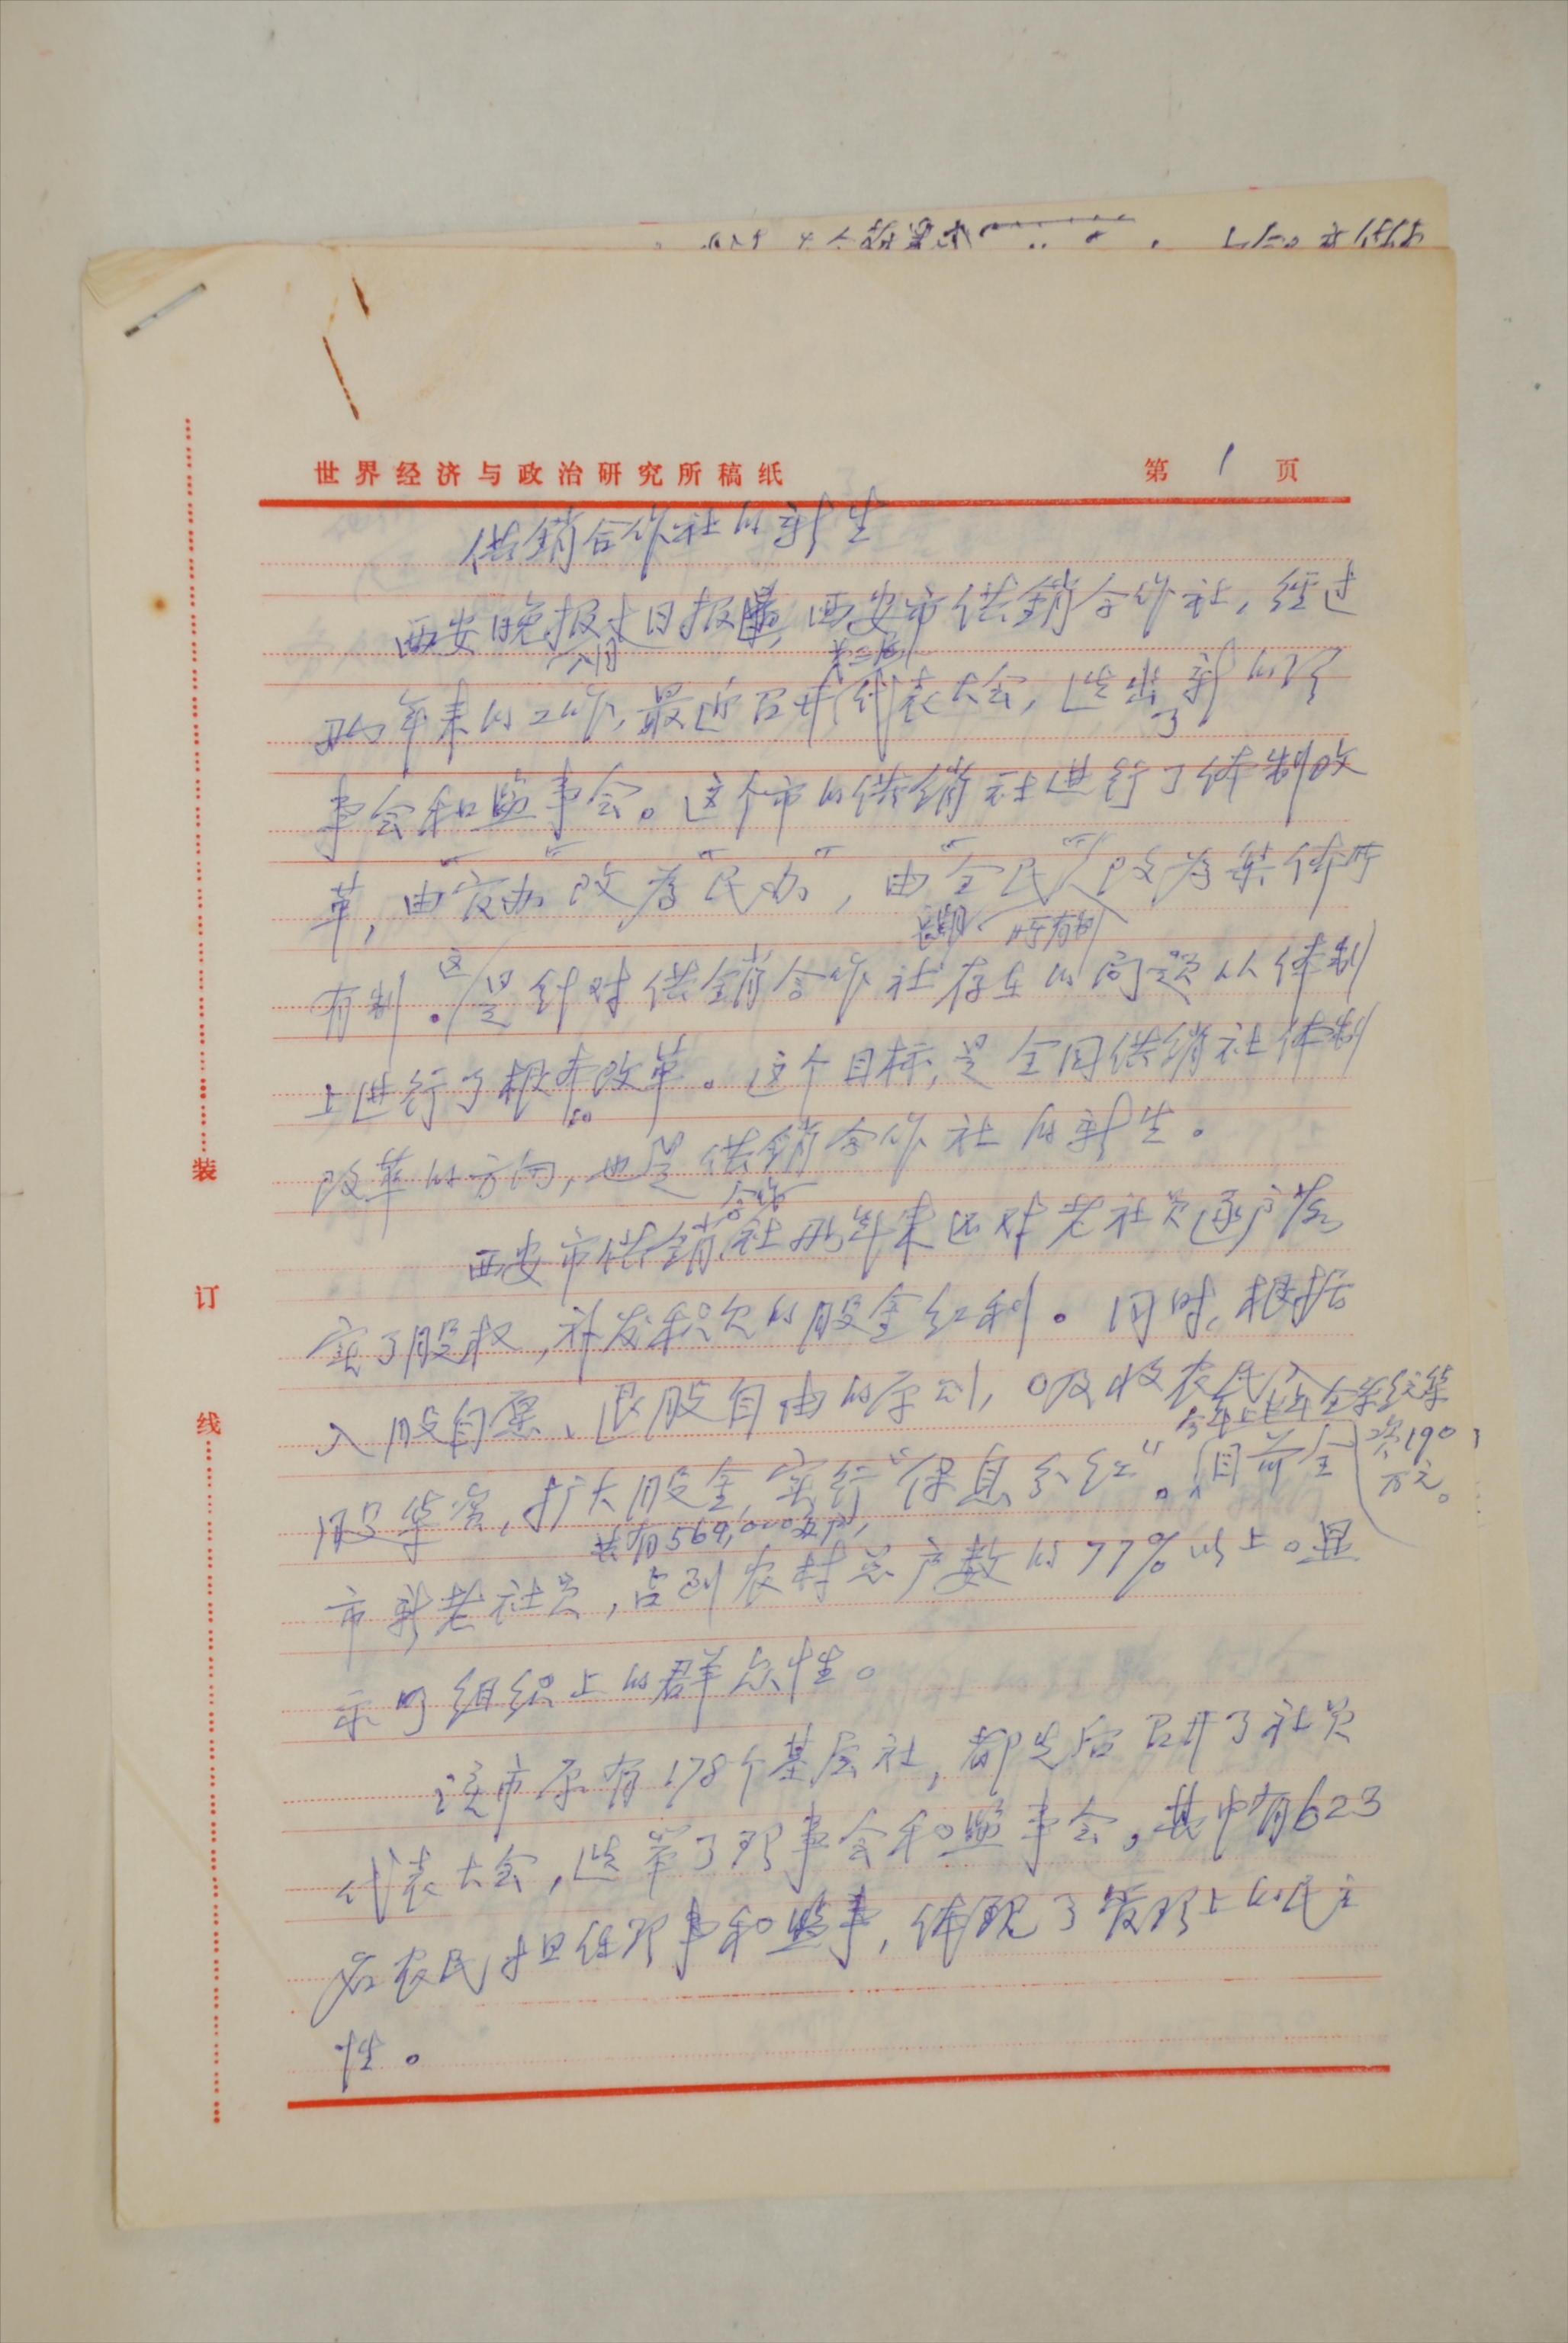 世界经济与政治研究所稿纸 第 1 页
供销合作社的新生
西安晚报 日报 西安市供销合作社，经过
八月
两年来的工作，最近召开代表大会，选出了新的理
事会和监事会。这个市的供销社进行了体制改
革，由"官办"改为"民办"，由"全民"改为集体所
所有制
有制。这是针对供销合作社存在的问题从体制
上进行了根本的改革。这个目标，是全国供销社体制
改革的方向，也是供销合作社的新生。
西安市供销合作社两年来还对老社员逐户落
实了股权，补发积欠的股金红利。同时，根据
入股自愿、退股自由的原则，吸收农民入
今年上半年全系统集
资190万元。
股集资，扩大股金，实行"保息分红"。目前全
共有564,000 户，
市新老社员，占到农村总户数的77%以上。显
示了组织上的群众性。
该市原有178个基层社，都先后召开了社员
代表大会，选举了理事会和监事会，其中有623
名农民担任理事和监事，体现了管理上的民主
性。
装
订
线